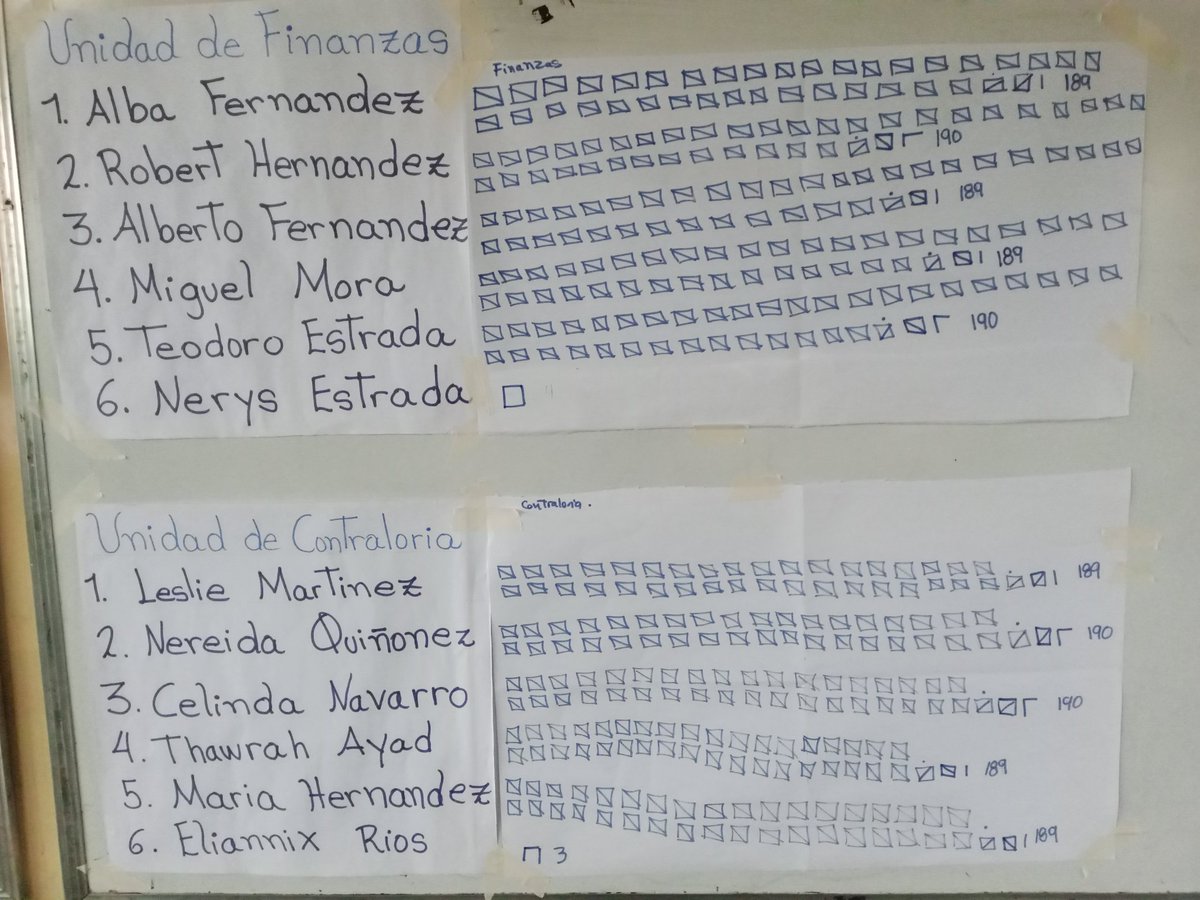 Unidad de Finanzas
1. Alba Fernandez
2. Robert Hernandez
3. Alberto Fernandez
4. Miguel Mora
5. Teodoro Estrada
6. Nerys Estrada
Finanzas
189
190
189
189
190
Unidad de Contraloria
1. Leslie Martinez
2. Nereida Quiñonez
3. Celinda Navarro
4. Thawrah Ayad
5. Maria Hernandez
6. Eliannix Rios
Contraloria.
189
190
190
189
189
3